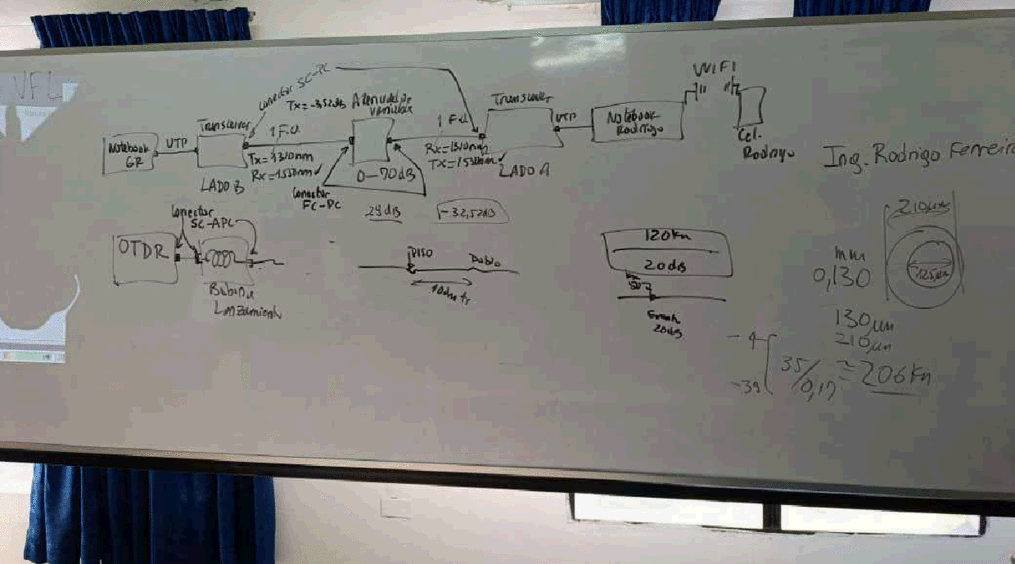 VFL
WIFI
Conector SC-PC
Tx=-3,52dB
Atenuador
variable
Transceiver
Transceiver
1 F.O
1 F.O
UTP
UTP
Notebook
GR
Notebook
Rodrigo
Cel.
Rodrigo
Tx=1310nm
Rx=1550nm
Rx=1310nm
Tx=1550nm
0-70dB
LADO B
LADO A
Conector
FC-PC
Ing. Rodrigo Ferreira
29dB
-32,52dB
Conector
SC-APC
OTDR
Bobina
Lanzamiento
PISO
Doblo
120Km
20dB
20dB
210µm
125µm
mm
0,130
130µm
210µm
-4
-39
35/0,17 ≅ 206Km